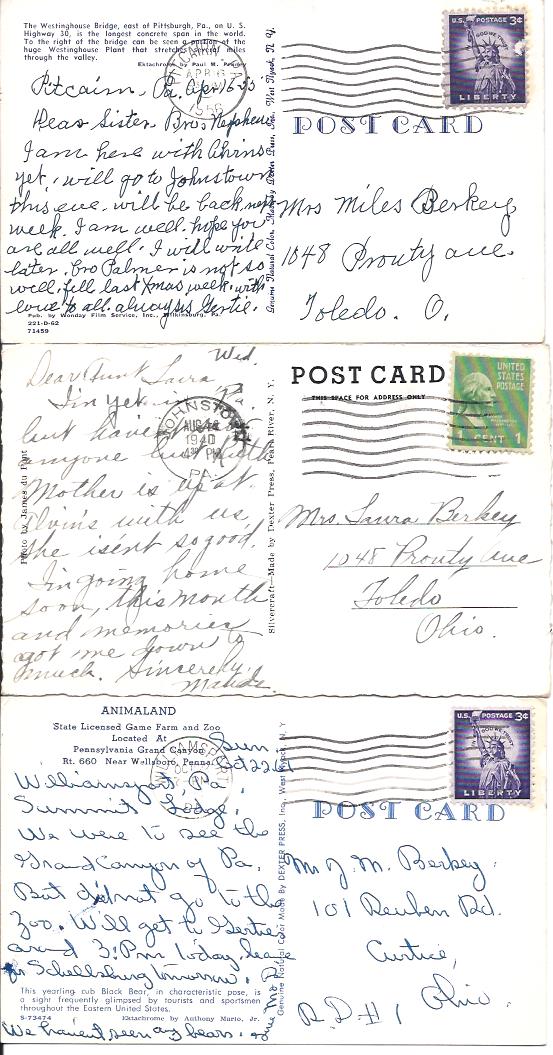 The Westinghouse Bridge, east of Pittsburgh, Pa., on U. S.
Highway 30, is the longest concrete span in the world.
To the right of the bridge can be seen a portion of the
huge Westinghouse Plant that stretches several miles
through the valley.
Ektachrome by Paul W.
Pitcairn, Pa. Apr 16-55
Dear Sister- Bro & Nephew
I am here with
yet, will go to Johnstown
this eve. will be back next
week. I am well. hope you
are all well. I will write
later. Bro Palmer is not so
well. fell last Xmas week. with
love to all. always Gertie.
Pub. by Wonday Film Service, Inc., Wilkinsburg, Pa.
221-D-62
71459
Genuine Natural Color Made by Dexter Press, Inc., West Nyack, N. Y.
PITCAIRN
APR 16
PA.
U.S. POSTAGE 3¢
IN GOD WE TRUST
LIBERTY
POST CARD
Mrs Miles Berkey
1048 Prouty ave.
Toledo. O.
Wed.
Dear Aunt Laura,
I'm yet in Pa.
but haven't
anyone but Ruth
Mother is up at
Alvin's with us,
she isent so good.
I'm going home
soon, this month
and memories
got me down to
much. Sincerely,
Photo by James du Pont
JOHNSTOWN
AUG 14
1940
4 30 PM
PA.
Silvercraft—Made by Dexter Press, Pearl River, N. Y.
POST CARD
THIS SPACE FOR ADDRESS ONLY
UNITED
STATES
POSTAGE
1 CENT 1
Mrs. Laura Berkey
1048 Prouty ave
Toledo
Ohio.
ANIMALAND
State Licensed Game Farm and Zoo
Located At
Pennsylvania Grand Canyon
Rt. 660 Near Wellsboro, Penna.
Sun.
Oct 22
Williamsport, Pa.
Summit Lodge.
We were to see the
Grand Canyon of Pa.
But did not go to the
Zoo. Will get to Gerties
around 3. P.m today, leave
for Schellsburg tomorrow.
This yearling cub Black Bear, in characteristic pose, is
a sight frequently glimpsed by tourists and sportsmen
throughout the Eastern United States.
S-73474
Ektachrome by Anthony Mario, Jr.
We haven't seen any bears.
Genuine Natural Color Made By DEXTER PRESS, Inc., West Nyack, N. Y.
U.S. POSTAGE 3¢
IN GOD WE TRUST
LIBERTY
POST CARD
Mr J. M. Berkey.
101 Reuben Rd.
Curtice,
R. D # 1 Ohio.